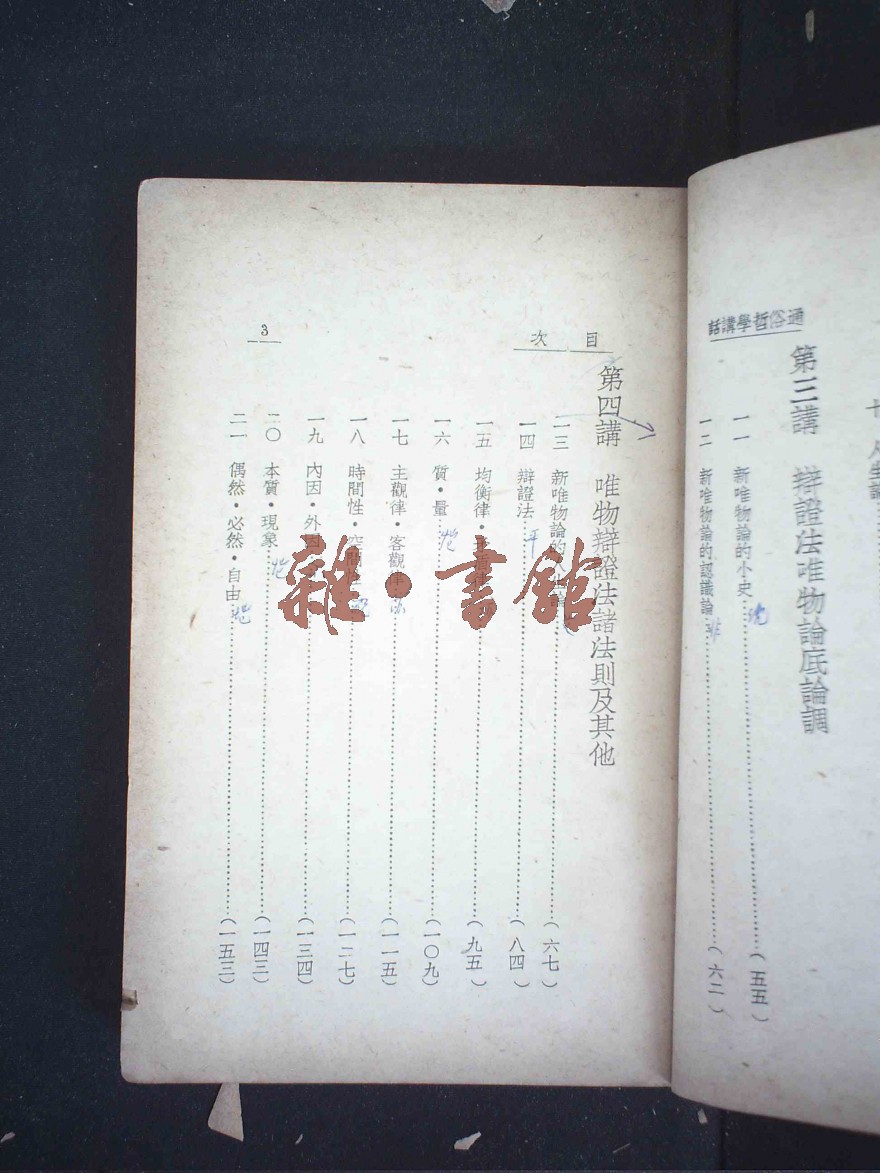 通俗哲學講話
第三講 辯證法唯物論底論調
一一 新唯物論的小史 (五五)
一二 新唯物論的認識論 (六二)
目次
第四講 唯物辯證法諸法則及其他
一三 新唯物論的 (六七)
一四 辯證法 (八四)
一五 均衡律・ (九五)
一六 質・量 (一〇九)
一七 主觀律・客觀律 (一一五)
一八 時間性・空間性 (一二七)
一九 內因・外因 (一三四)
二〇 本質・現象 (一四三)
二一 偶然・必然・自由 (一五三)
3
雜・書館